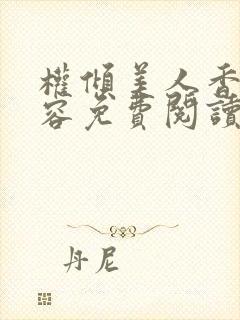 權傾美人香
容免費閱讀
丹尼